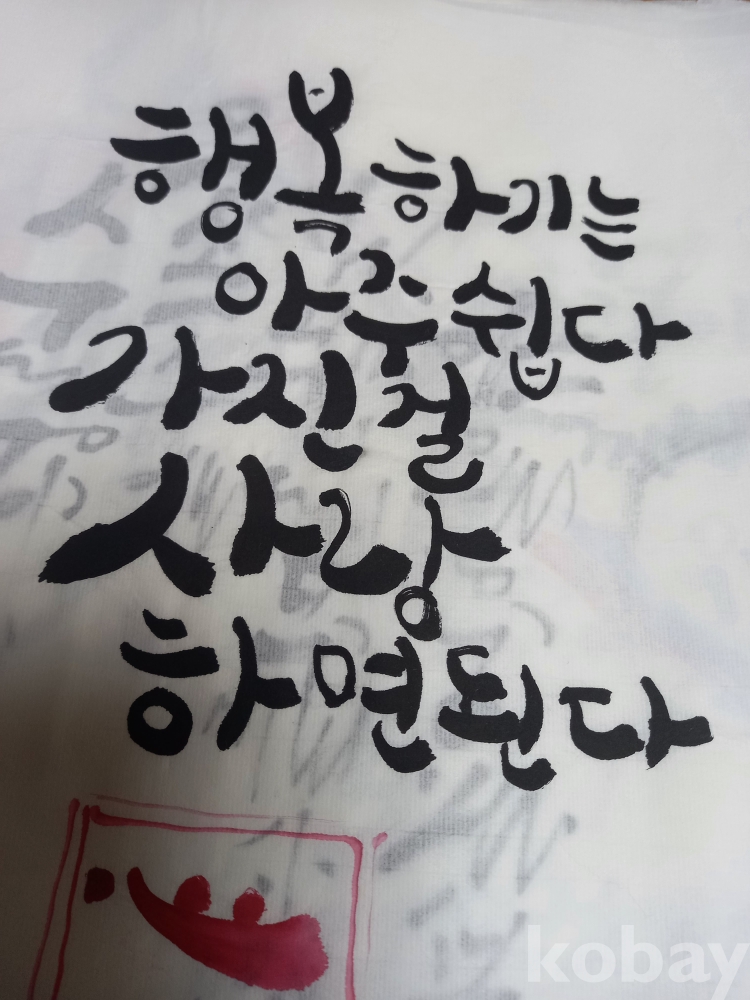 행복하기는
아주 쉽다
가진걸
사랑
하면된다
kobay